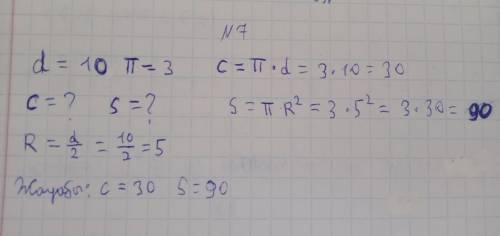 N7
d = 10 π = 3 C = π · d = 3 · 10 = 30
C = ? S = ? S = π R² = 3 · 5² = 3 · 30 = 90
R = d/2 = 10/2 = 5
Жауабы: C = 30 S = 90